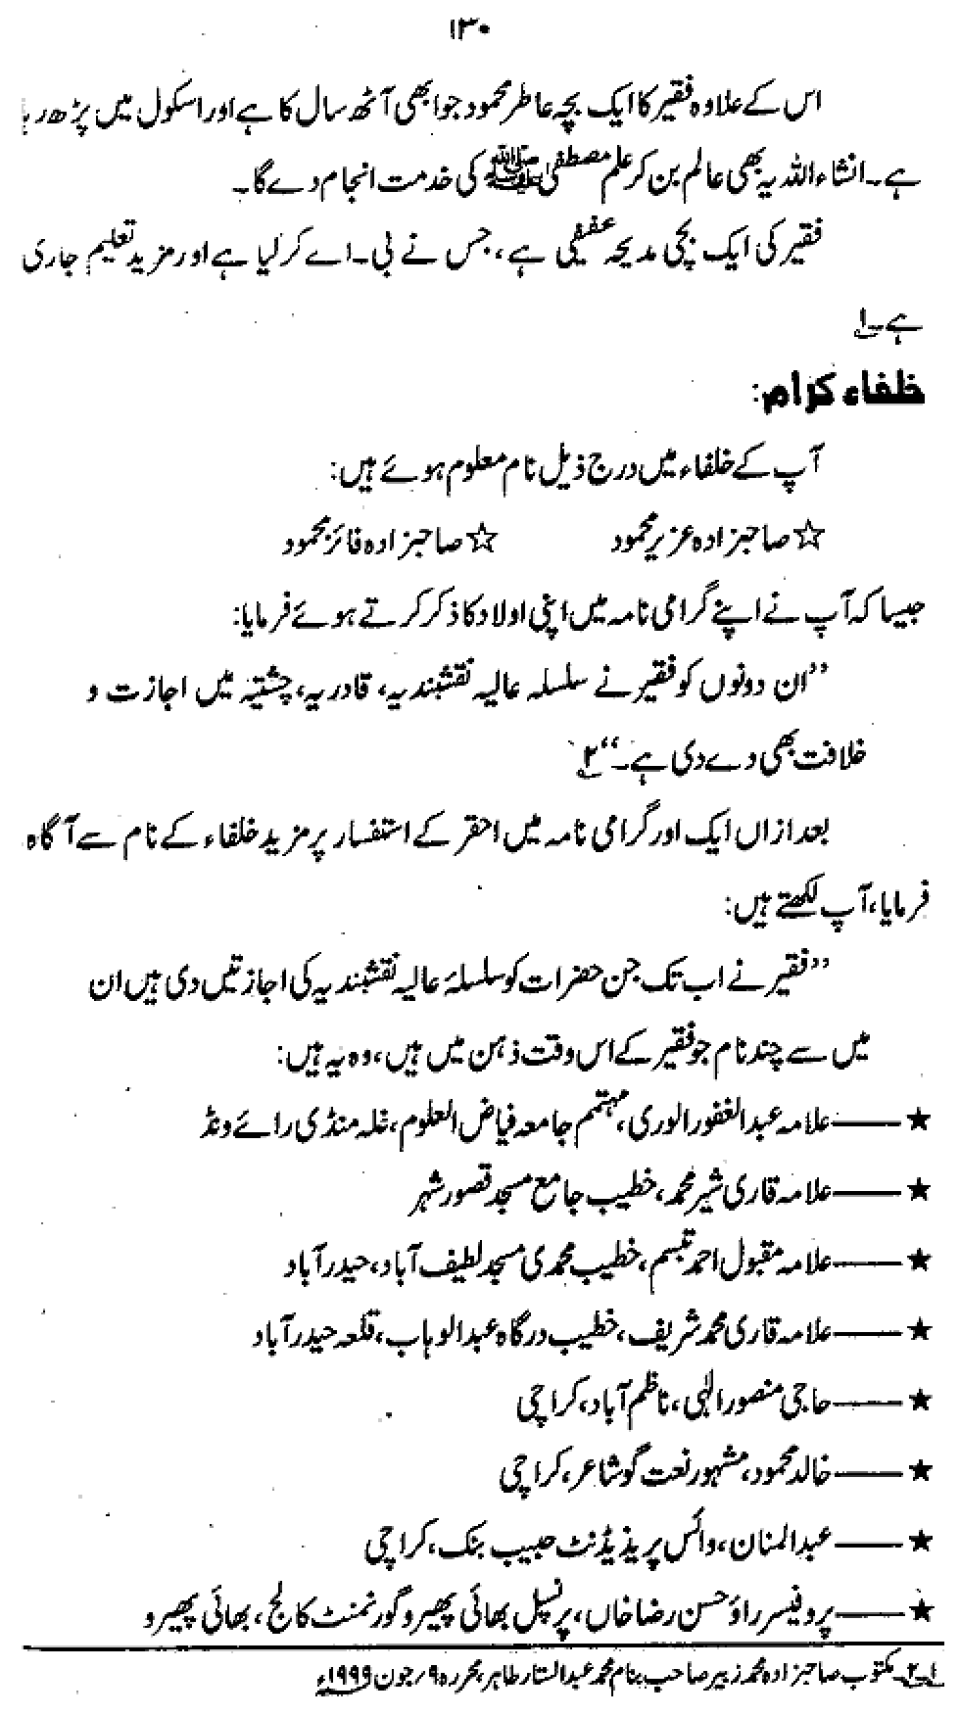 ۱۳۰
اس کے علاوہ فقیر کا ایک بچہ عاطر محمود جو ابھی آٹھ سال کا ہے اور اسکول میں پڑھ رہا
ہے۔ انشاء اللہ یہ بھی عالم بن کر علم مصطفیٰ ﷺ کی خدمت انجام دے گا۔
فقیر کی ایک بچی مدیحہ عفیفی ہے، جس نے بی۔اے کر لیا ہے اور مزید تعلیم جاری
ہے۔۱
خلفاء کرام:
آپ کے خلفاء میں درج ذیل نام معلوم ہوئے ہیں:
☆ صاحبزادہ عزیر محمود ☆ صاحبزادہ فائز محمود
جیسا کہ آپ نے اپنے گرامی نامہ میں اپنی اولاد کا ذکر کرتے ہوئے فرمایا:
”ان دونوں کو فقیر نے سلسلہ عالیہ نقشبندیہ، قادریہ، چشتیہ میں اجازت و
خلافت بھی دے دی ہے۔“۲
بعد ازاں ایک اور گرامی نامہ میں احقر کے استفسار پر مزید خلفاء کے نام سے آگاہ
فرمایا، آپ لکھتے ہیں:
”فقیر نے اب تک جن حضرات کو سلسلۂ عالیہ نقشبندیہ کی اجازتیں دی ہیں ان
میں سے چند نام جو فقیر کے اس وقت ذہن میں ہیں، وہ یہ ہیں:
★——علامہ عبدالغفور الوری، مہتمم جامعہ فیاض العلوم، غلہ منڈی رائے ونڈ
★——علامہ قاری شیر محمد، خطیب جامع مسجد قصور شہر
★——علامہ مقبول احمد تبسم، خطیب محمدی مسجد لطیف آباد، حیدرآباد
★——علامہ قاری محمد شریف، خطیب درگاہ عبدالوہاب، قلعہ حیدرآباد
★——حاجی منصور الٰہی، ناظم آباد، کراچی
★——خالد محمود، مشہور نعت گو شاعر، کراچی
★——عبدالمنان، وائس پریذیڈنٹ حبیب بنک، کراچی
★——پروفیسر راؤ حسن رضا خاں، پرنسپل بھائی پھیرو گورنمنٹ کالج، بھائی پھیرو
۱۔۲۔ مکتوب صاحبزادہ محمد زبیر صاحب بنام محمد عبدالستار طاہر محررہ ۹/جون ۱۹۹۹ء